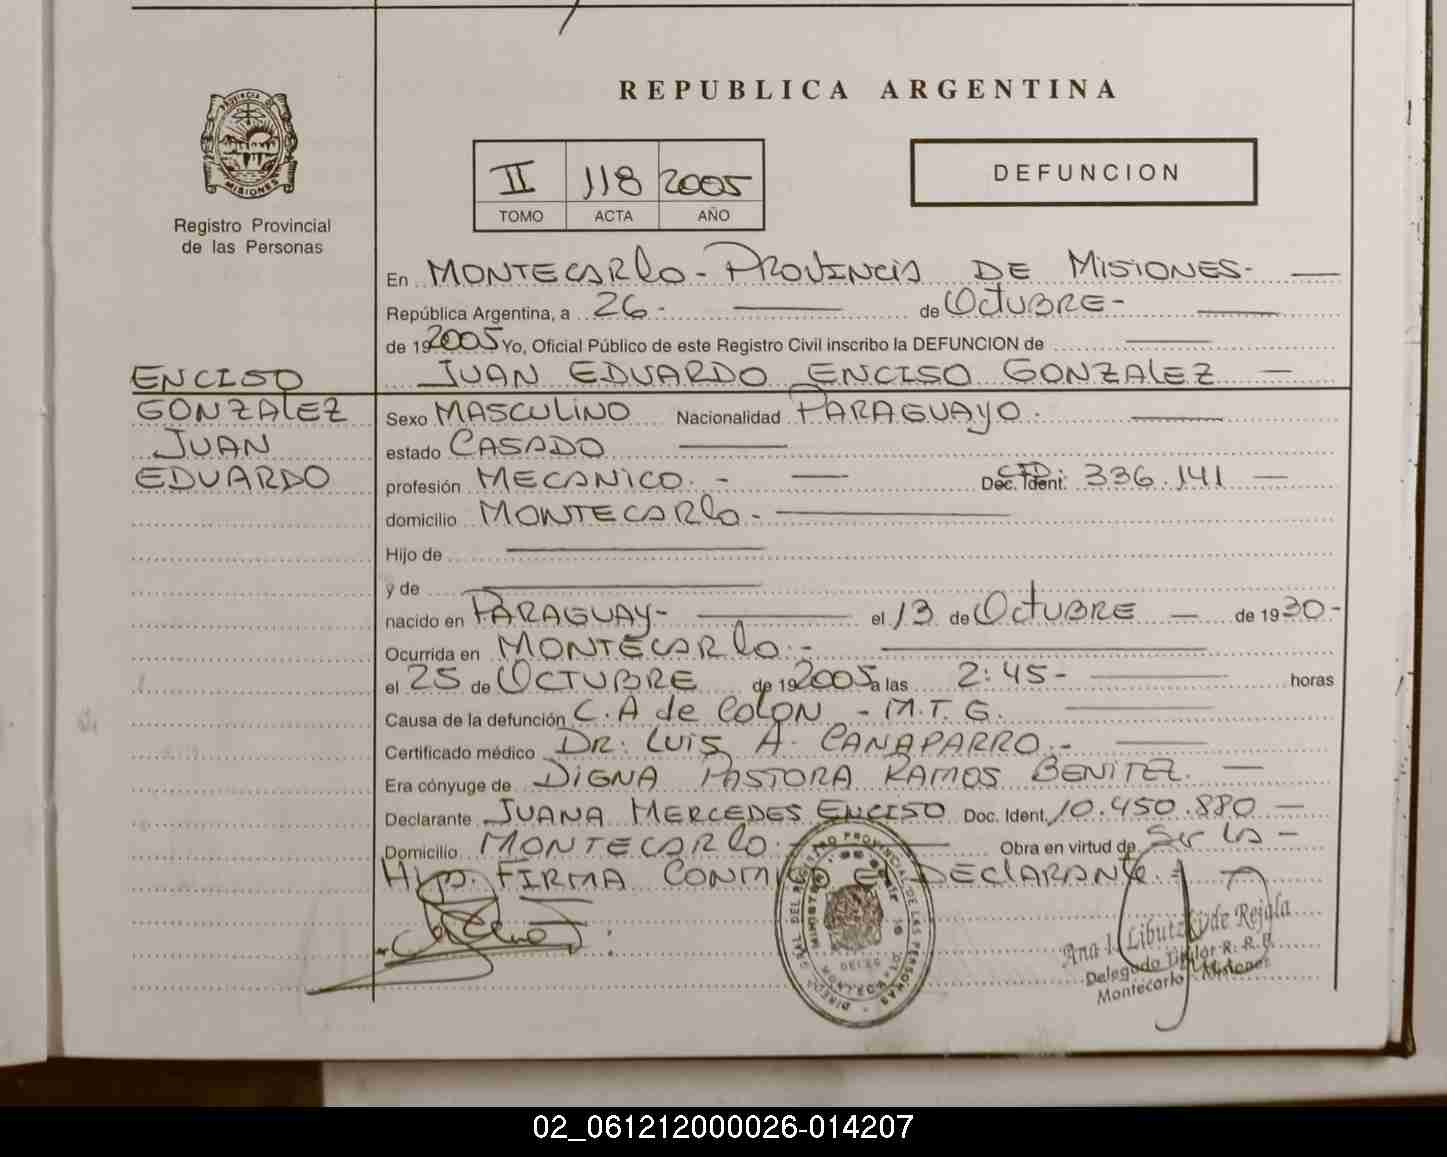 REPUBLICA ARGENTINA
PROVINCIA DE
MISIONES
Registro Provincial
de las Personas
II 118 2005
TOMO ACTA AÑO
DEFUNCION
En MONTECARLO - PROVINCIA DE MISIONES -
República Argentina, a 26 - de OCTUBRE -
de 19 2005 Yo, Oficial Público de este Registro Civil inscribo la DEFUNCION de
JUAN EDUARDO ENCISO GONZALEZ
ENCISO
GONZALEZ
JUAN
EDUARDO
Sexo MASCULINO Nacionalidad PARAGUAYO.
estado CASADO
profesión MECANICO. - Doc. Ident: 336.141
domicilio MONTECARLO -
Hijo de
y de
nacido en PARAGUAY - el 13 de OCTUBRE de 1930 -
Ocurrida en MONTECARLO. -
el 25 de OCTUBRE de 19 2005 a las 2:45 - horas
Causa de la defunción C.A de COLON - M.T.G.
Certificado médico DR. LUIS A. CANAPARRO. -
Era cónyuge de DIGNA PASTORA RAMOS BENITEZ.
Declarante JUANA MERCEDES ENCISO Doc. Ident. 10.450.880
Domicilio MONTECARLO. Obra en virtud de Ser LA -
HIJA. FIRMA CONMIGO EL DECLARANTE.
Ana I. Libutzki de Rejala
Delegado Titular R. R. P.
Montecarlo - Misiones
02_061212000026-014207